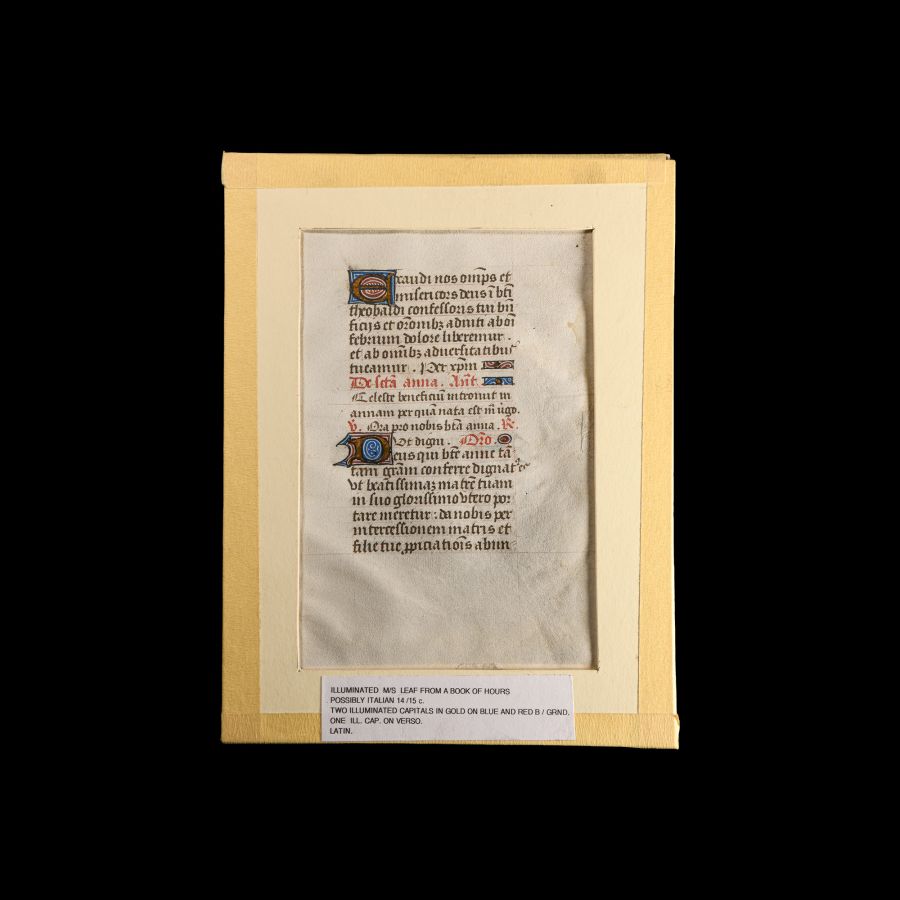 Exaudi nos om̄ps et
misericors deus ī bt̄i
theobaldi confessoris tui bn̄
ficijs et or̄onibꝫ adiuti a boī
febrium dolore liberemur .
et ab om̄ibꝫ aduersitatibus
tueamur . Per xp̄m
De sct̄a anna . Ant̄.
Celeste beneficiū introiuit in
annam per quā nata est m̄ ūgo.
V̄. Ora pro nobis bt̄a anna . R̄.
Vt digni . Or̄o.
Deus qui bt̄e anne tā
tam gr̄am conferre dignatꝰ es
vt beatissimaꝫ matrē tuam
in suo glorissimo vtero por
tare meretur : da nobis per
intercessionem matris et
filie tue ꝓpiciatiōis abun
ILLUMINATED M/S LEAF FROM A BOOK OF HOURS
POSSIBLY ITALIAN 14 /15 c.
TWO ILLUMINATED CAPITALS IN GOLD ON BLUE AND RED B / GRND.
ONE ILL. CAP. ON VERSO.
LATIN.